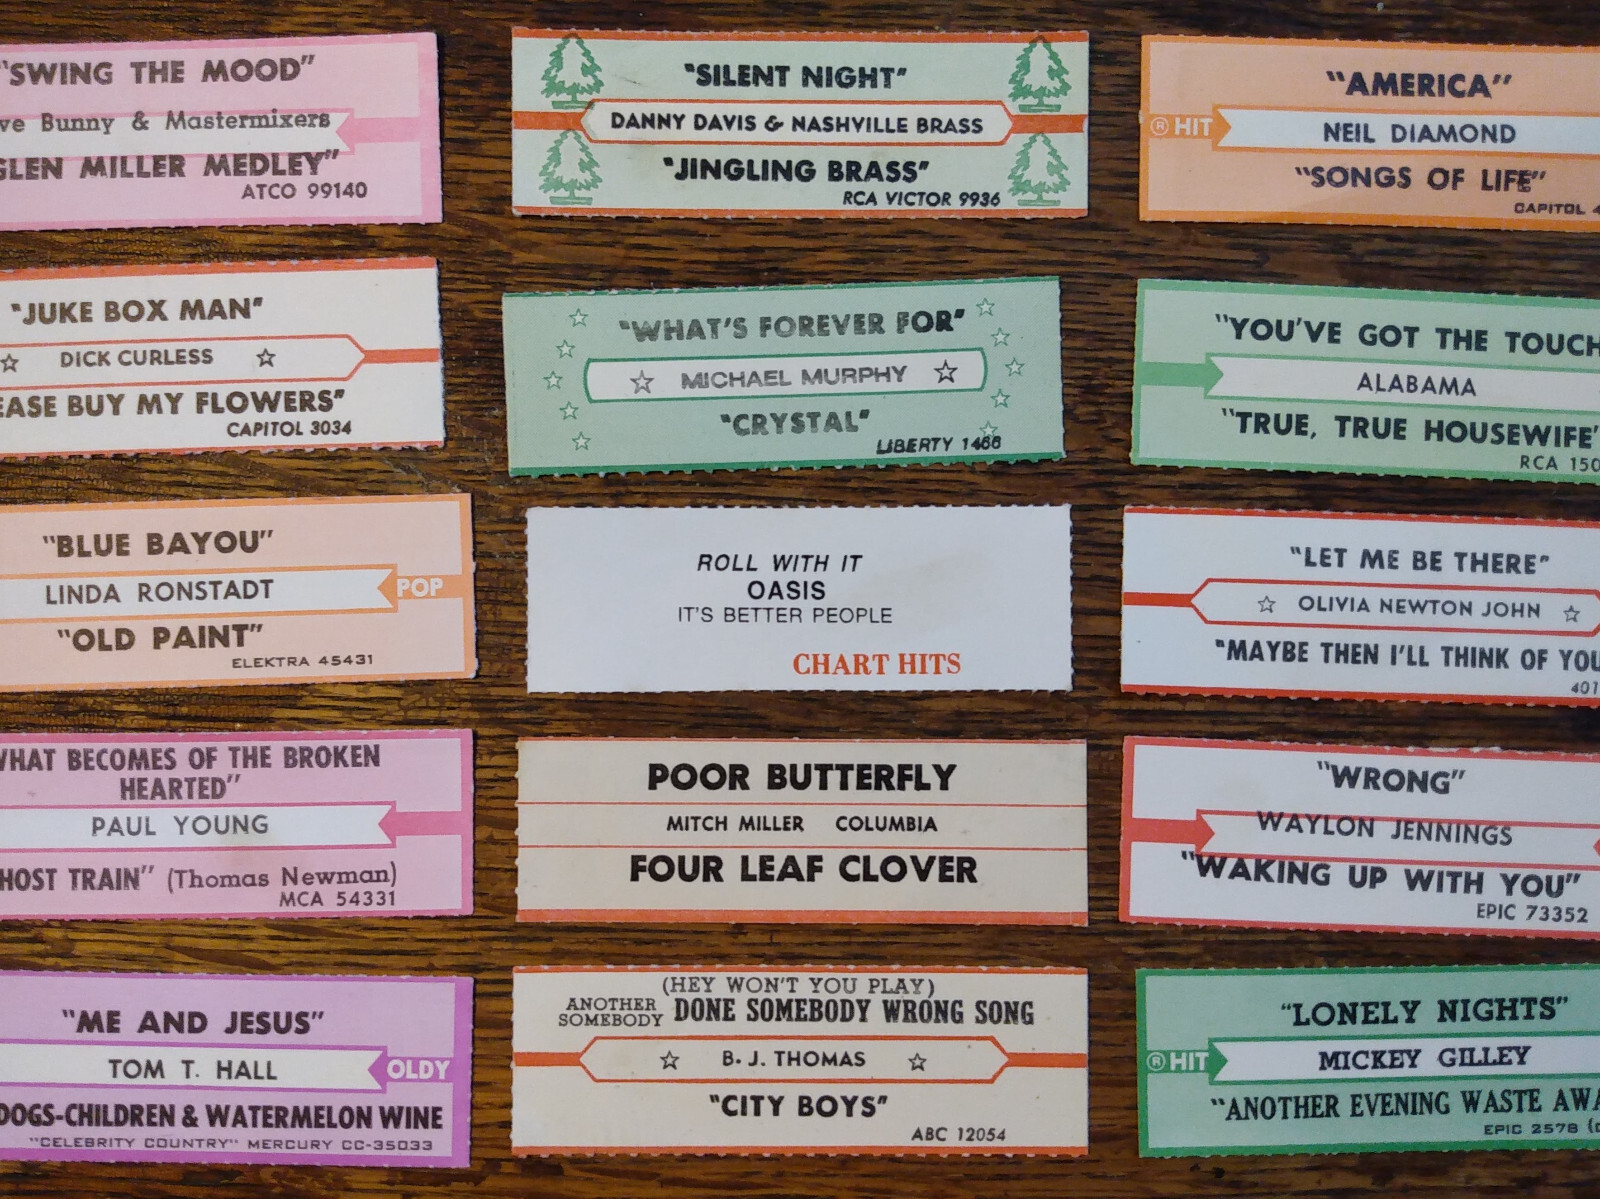 "SWING THE MOOD"
ve Bunny & Mastermixers
GLEN MILLER MEDLEY"
ATCO 99140
"SILENT NIGHT"
DANNY DAVIS & NASHVILLE BRASS
"JINGLING BRASS"
RCA VICTOR 9936
"AMERICA"
® HIT
NEIL DIAMOND
"SONGS OF LIFE"
CAPITOL 4
"JUKE BOX MAN"
DICK CURLESS
EASE BUY MY FLOWERS"
CAPITOL 3034
"WHAT'S FOREVER FOR"
MICHAEL MURPHY
"CRYSTAL"
LIBERTY 1466
"YOU'VE GOT THE TOUCH
ALABAMA
"TRUE, TRUE HOUSEWIFE"
RCA 150
"BLUE BAYOU"
LINDA RONSTADT
POP
"OLD PAINT"
ELEKTRA 45431
ROLL WITH IT
OASIS
IT'S BETTER PEOPLE
CHART HITS
"LET ME BE THERE"
OLIVIA NEWTON JOHN
"MAYBE THEN I'LL THINK OF YOU
401
WHAT BECOMES OF THE BROKEN
HEARTED"
PAUL YOUNG
HOST TRAIN" (Thomas Newman)
MCA 54331
POOR BUTTERFLY
MITCH MILLER COLUMBIA
FOUR LEAF CLOVER
"WRONG"
WAYLON JENNINGS
"WAKING UP WITH YOU"
EPIC 73352
"ME AND JESUS"
TOM T. HALL
OLDY
DOGS-CHILDREN & WATERMELON WINE
"CELEBRITY COUNTRY" MERCURY CC-35033
(HEY WON'T YOU PLAY)
ANOTHER SOMEBODY DONE SOMEBODY WRONG SONG
B. J. THOMAS
"CITY BOYS"
ABC 12054
"LONELY NIGHTS"
® HIT
MICKEY GILLEY
"ANOTHER EVENING WASTE AWA
EPIC 2578